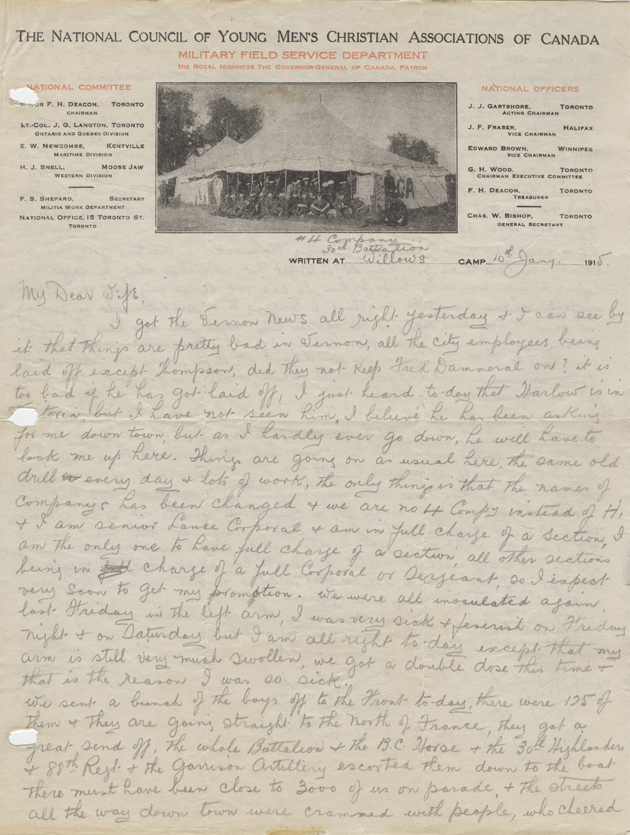 THE NATIONAL COUNCIL OF YOUNG MEN'S CHRISTIAN ASSOCIATIONS OF CANADA
MILITARY FIELD SERVICE DEPARTMENT
HIS ROYAL HIGHNESS THE GOVERNOR-GENERAL OF CANADA, PATRON
NATIONAL COMMITTEE
F. H. DEACON, TORONTO
CHAIRMAN
LT.-COL. J. G. LANGTON, TORONTO
ONTARIO AND QUEBEC DIVISION
E. W. NEWCOMBE, KENTVILLE
MARITIME DIVISION
H. J. SNELL, MOOSE JAW
WESTERN DIVISION
F. S. SHEPARD, SECRETARY
MILITIA WORK DEPARTMENT
NATIONAL OFFICE, 15 TORONTO ST.
TORONTO
NATIONAL OFFICERS
J. J. GARTSHORE, TORONTO
ACTING CHAIRMAN
J. F. FRASER, HALIFAX
VICE CHAIRMAN
EDWARD BROWN, WINNIPEG
VICE CHAIRMAN
G. H. WOOD, TORONTO
CHAIRMAN EXECUTIVE COMMITTEE
F. H. DEACON, TORONTO
TREASURER
CHAS. W. BISHOP, TORONTO
GENERAL SECRETARY
#4 Company
30th Battalion
WRITTEN AT Willows CAMP 10th Jany. 1915.
My Dear Wife,
I got the Vernon News all right yesterday & I can see by
it that things are pretty bad in Vernon, all the city employees being
laid off except Thompson, did they not keep Fred on? it is
too bad if he has got laid off, I just heard to-day that Harlow is in
town, but I have not seen him, I believe he has been asking
for me down town, but as I hardly ever go down, he will have to
look me up here. Things are going on as usual here, the same old
drill every day & lots of work, the only things is that the names of
Companys has been changed & we are no 4 Compy instead of H,
& I am senior Lance Corporal & am in full charge of a section, I
am the only one to have full charge of a section, all other sections
being in charge of a full Corporal or Sergeant, so I expect
very soon to get my promotion. We were all inoculated again
last Friday in the left arm, I was very sick & feverish on Friday
night & on Saturday but I am all right to-day except that my
arm is still very much swollen, we got a double dose this time &
that is the reason I was so sick.
We sent a bunch of the boys off to the Front to-day, there were 125 of
them & they are going straight to the North of France, they got a
great send off, the whole Battalion & the B.C. Horse & the 30th Highlanders
& 88th Regt & the Garrison Artillery escorted them down to the boat
there must have been close to 3000 of us on parade & the streets
all the way down town were crammed with people, who cheered